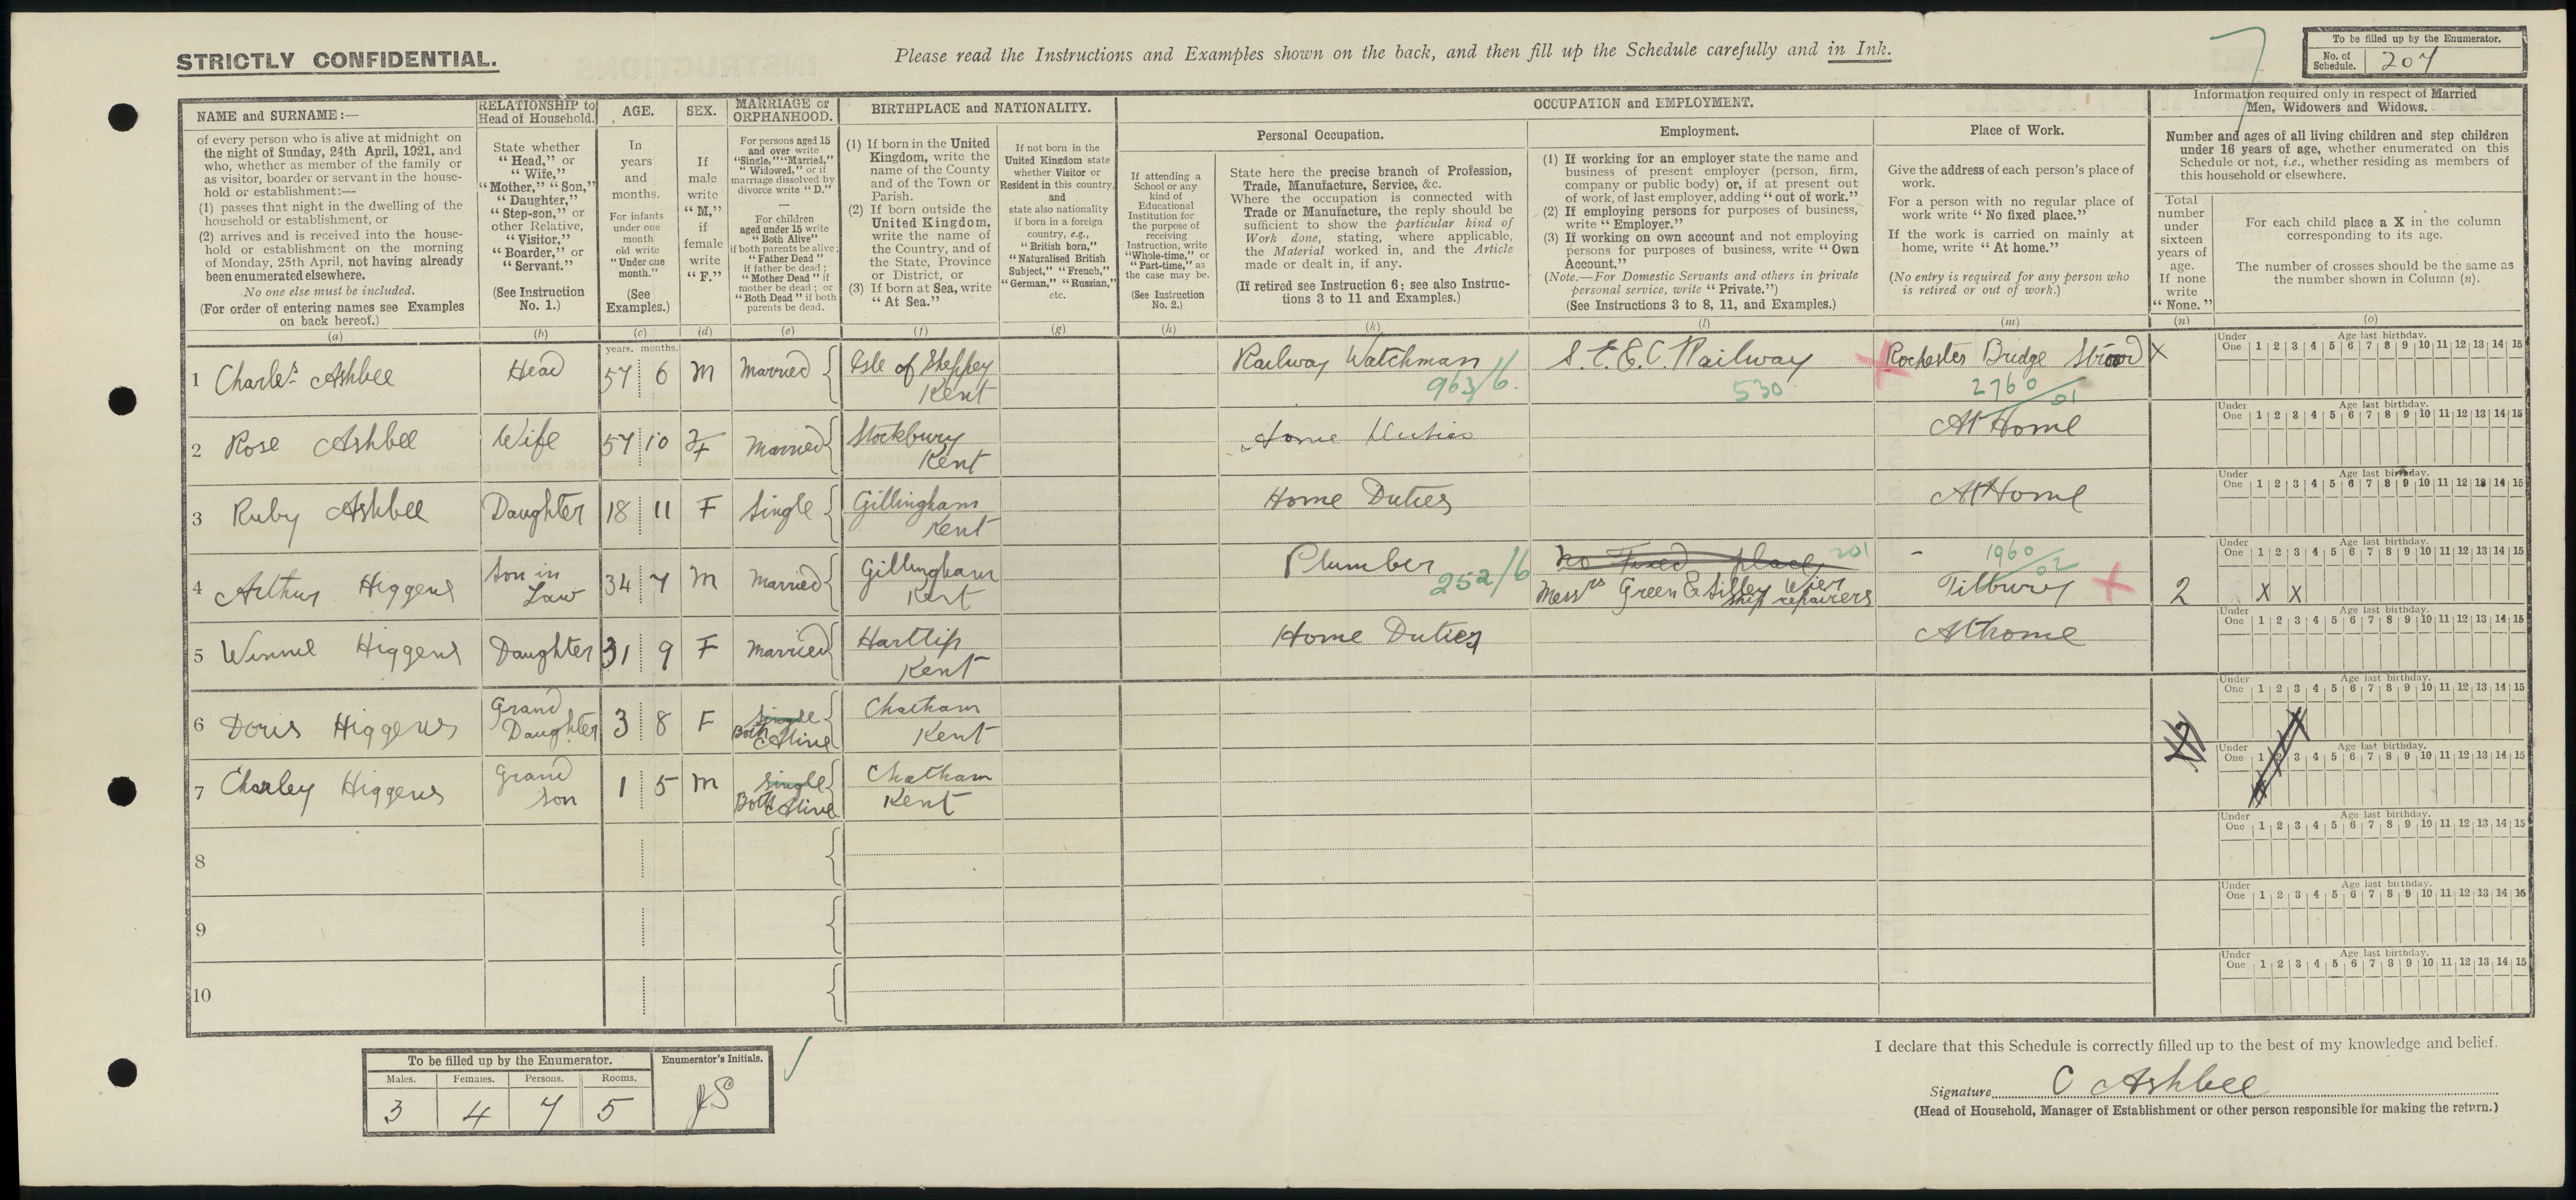 STRICTLY CONFIDENTIAL.
Please read the Instructions and Examples shown on the back, and then fill up the Schedule carefully and in Ink.
7
To be filled up by the Enumerator.
No. of Schedule. 207
NAME and SURNAME:—
of every person who is alive at midnight on
the night of Sunday, 24th April, 1921, and
who, whether as member of the family or
as visitor, boarder or servant in the house-
hold or establishment:—
(1) passes that night in the dwelling of the
household or establishment, or
(2) arrives and is received into the house-
hold or establishment on the morning
of Monday, 25th April, not having already
been enumerated elsewhere.
No one else must be included.
(For order of entering names see Examples
on back hereof.)
(a)
RELATIONSHIP to
Head of Household.
State whether
"Head," or
"Wife,"
"Mother," "Son,"
"Daughter,"
"Step-son," or
other Relative,
"Visitor,"
"Boarder," or
"Servant."
(See Instruction
No. 1.)
(b)
AGE.
In
years
and
months.
For infants
under one
month
old write
"Under one
month."
(See
Examples.)
(c)
SEX.
If
male
write
"M,"
if
female
write
"F."
(d)
MARRIAGE or
ORPHANHOOD.
For persons aged 15
and over write
"Single," "Married,"
"Widowed," or if
marriage dissolved by
divorce write "D."
—
For children
aged under 15 write
"Both Alive"
if both parents be alive;
"Father Dead"
if father be dead;
"Mother Dead" if
mother be dead; or
"Both Dead" if both
parents be dead.
(e)
BIRTHPLACE and NATIONALITY.
(1) If born in the United
Kingdom, write the
name of the County
and of the Town or
Parish.
(2) If born outside the
United Kingdom,
write the name of
the Country, and of
the State, Province
or District, or
(3) If born at Sea, write
"At Sea."
(f)
If not born in the
United Kingdom state
whether Visitor or
Resident in this country,
and
state also nationality
if born in a foreign
country, e.g.,
"British born,"
"Naturalised British
Subject," "French,"
"German," "Russian,"
etc.
(g)
OCCUPATION and EMPLOYMENT.
If attending a
School or any
kind of
Educational
Institution for
the purpose of
receiving
Instruction, write
"Whole-time," or
"Part-time," as
the case may be.
(See Instruction
No. 2.)
(h)
Personal Occupation.
State here the precise branch of Profession,
Trade, Manufacture, Service, &c.
Where the occupation is connected with
Trade or Manufacture, the reply should be
sufficient to show the particular kind of
Work done, stating, where applicable,
the Material worked in, and the Article
made or dealt in, if any.
(If retired see Instruction 6; see also Instruc-
tions 3 to 11 and Examples.)
(k)
Employment.
(1) If working for an employer state the name and
business of present employer (person, firm,
company or public body) or, if at present out
of work, of last employer, adding "out of work."
(2) If employing persons for purposes of business,
write "Employer."
(3) If working on own account and not employing
persons for purposes of business, write "Own
Account."
(Note.—For Domestic Servants and others in private
personal service, write "Private.")
(See Instructions 3 to 8, 11, and Examples.)
(l)
Place of Work.
Give the address of each person's place of
work.
For a person with no regular place of
work write "No fixed place."
If the work is carried on mainly at
home, write "At home."
(No entry is required for any person who
is retired or out of work.)
(m)
Information required only in respect of Married
Men, Widowers and Widows.
Number and ages of all living children and step children
under 16 years of age, whether enumerated on this
Schedule or not, i.e., whether residing as members of
this household or elsewhere.
Total
number
under
sixteen
years of
age.
If none
write
"None."
(n)
For each child place a X in the column
corresponding to its age.
The number of crosses should be the same as
the number shown in Column (n).
(o)
years. months.
Under One Age last birthday. 1 2 3 4 5 6 7 8 9 10 11 12 13 14 15
1 Charles Ashbee Head 57 6 M Married Isle of Sheppey Kent Railway Watchman 963/6. S. E. & C. Railway 530 Rochester Bridge Strood 2760/01 X
Under One Age last birthday. 1 2 3 4 5 6 7 8 9 10 11 12 13 14 15
2 Rose Ashbee Wife 57 10 F Married Stockbury Kent Home Duties At Home
Under One Age last birthday. 1 2 3 4 5 6 7 8 9 10 11 12 13 14 15
3 Ruby Ashbee Daughter 18 11 F Single Gillingham Kent Home Duties At Home
Under One Age last birthday. 1 2 3 4 5 6 7 8 9 10 11 12 13 14 15
4 Arthur Higgens Son in Law 34 7 M Married Gillingham Kent Plumber 252/6 No Fixed place 201 Messrs Green & Silley Wier ship repairers - 1960/02 Tilbury 2 X X
Under One Age last birthday. 1 2 3 4 5 6 7 8 9 10 11 12 13 14 15
5 Winnie Higgens Daughter 31 9 F Married Hartlip Kent Home Duties At home
Under One Age last birthday. 1 2 3 4 5 6 7 8 9 10 11 12 13 14 15
6 Doris Higgens Grand Daughter 3 8 F Single Both Alive Chatham Kent
Under One Age last birthday. 1 2 3 4 5 6 7 8 9 10 11 12 13 14 15
7 Charley Higgens Grand son 1 5 M Single Both Alive Chatham Kent
Under One Age last birthday. 1 2 3 4 5 6 7 8 9 10 11 12 13 14 15
8
Under One Age last birthday. 1 2 3 4 5 6 7 8 9 10 11 12 13 14 15
9
Under One Age last birthday. 1 2 3 4 5 6 7 8 9 10 11 12 13 14 15
10
To be filled up by the Enumerator.
Males. Females. Persons. Rooms.
3 4 7 5
Enumerator's Initials.
JS
I declare that this Schedule is correctly filled up to the best of my knowledge and belief.
Signature C Ashbee
(Head of Household, Manager of Establishment or other person responsible for making the return.)